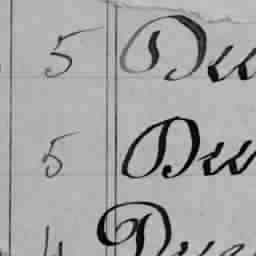 5 Du
5 Du
4 Du